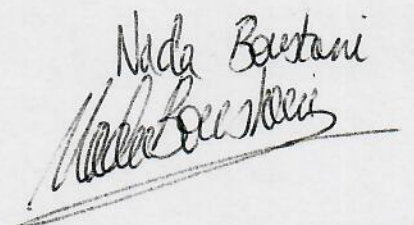 Nada Boustani
Nada Boustani